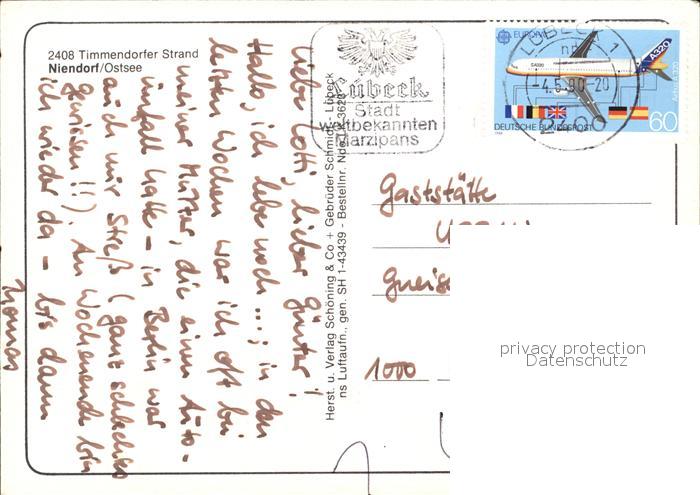 2408 Timmendorfer Strand
Niendorf/Ostsee
Liebe Lotti, lieber Günter!
Hallo, ich lebe noch...; in den
letzten Wochen war ich oft bei
meiner Mutter, die einen Auto-
unfall hatte - in Berlin war
auch mir Streß (ganz
gewesen!!). Am Wochenende bin
ich wieder da - bis dann
Thomas
Herst. u. Verlag Schöning & Co + Gebrüder Schmidt - Lübeck
ns Luftaufn., gen. SH 1-43439 - Bestellnr.
Lübeck
Stadt
weltbekannten
Marzipans
LÜBECK
1
-4.5.90-20
2400
EUROPA
A320
Airbus A320
DEUTSCHE BUNDESPOST
60
Gaststätte
1000
privacy protection
Datenschutz